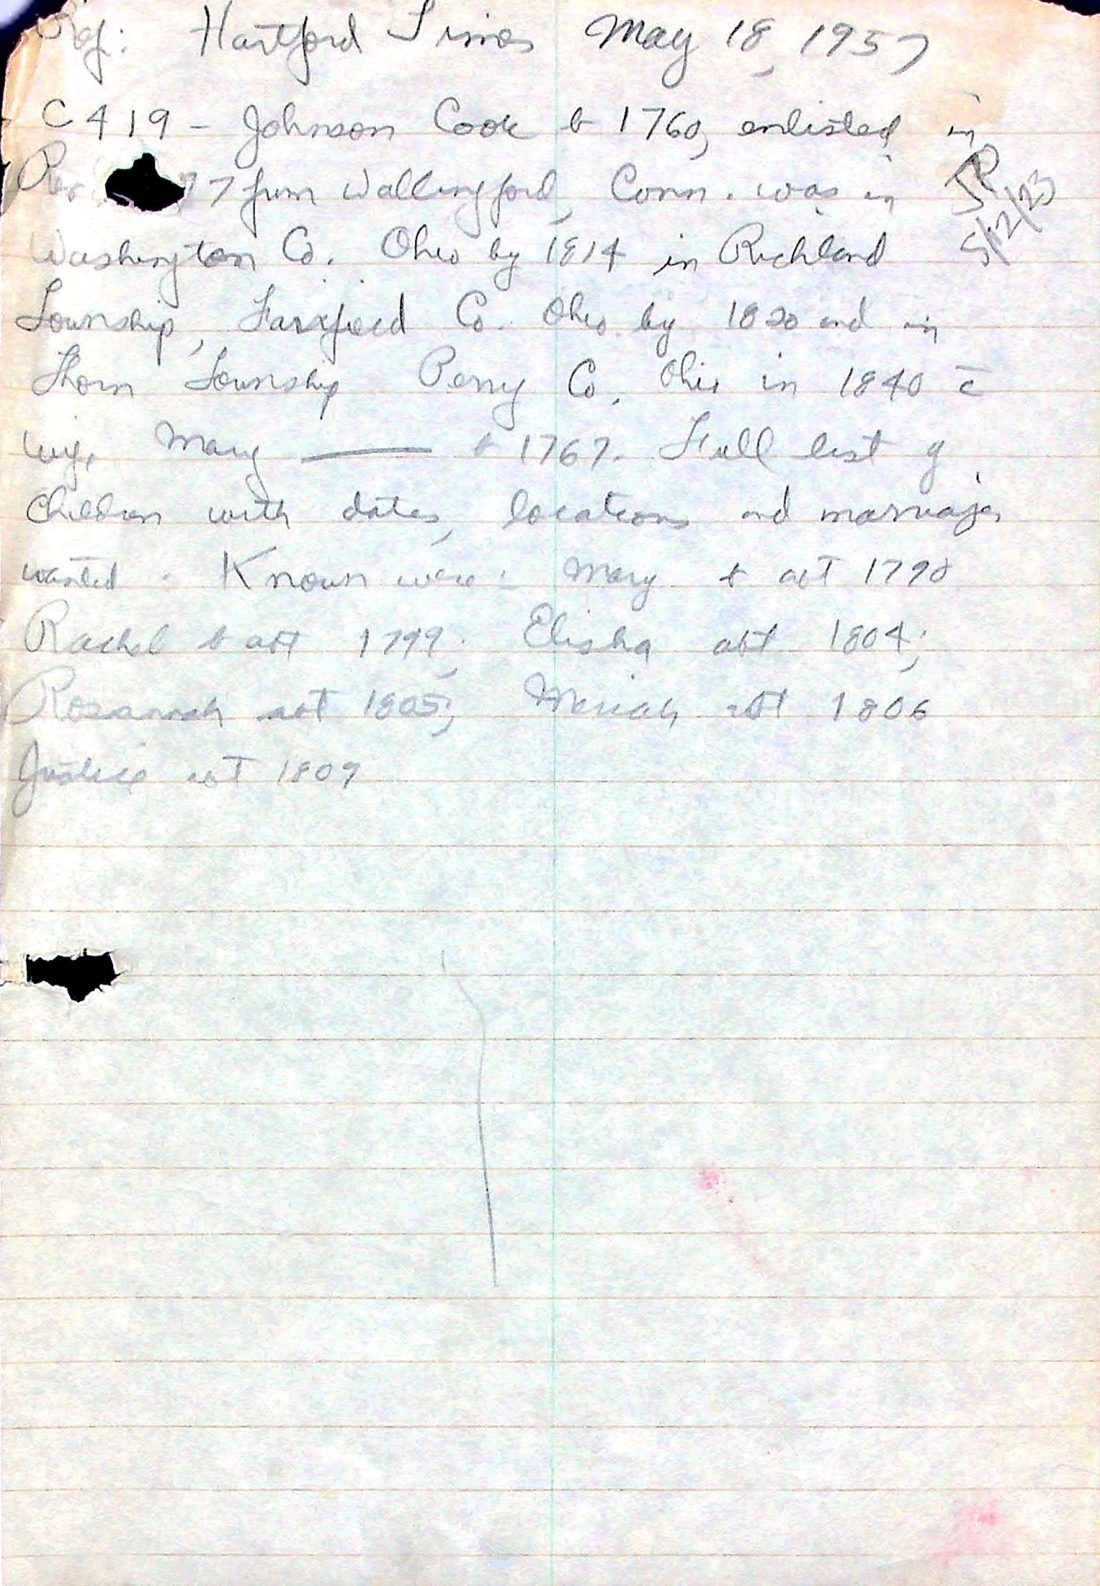 Ref: Hartford Times May 18, 1957
C419 - Johnson Cook b 1760, enlisted in
77 from Wallingford, Conn. was in
Washington Co. Ohio by 1814 in Richland
Township, Fairfield Co. Ohio by 1820 and in
Thorn Township Perry Co. Ohio in 1840 c̄
wife Mary —— b 1767. Full list of
children with dates, locations and marriages
wanted. Known were: Mary b abt 1798
Rachel b abt 1799; Elisha abt 1804;
Rosannah abt 1805; Meriah abt 1806
Justice abt 1809
JP
5/12/23